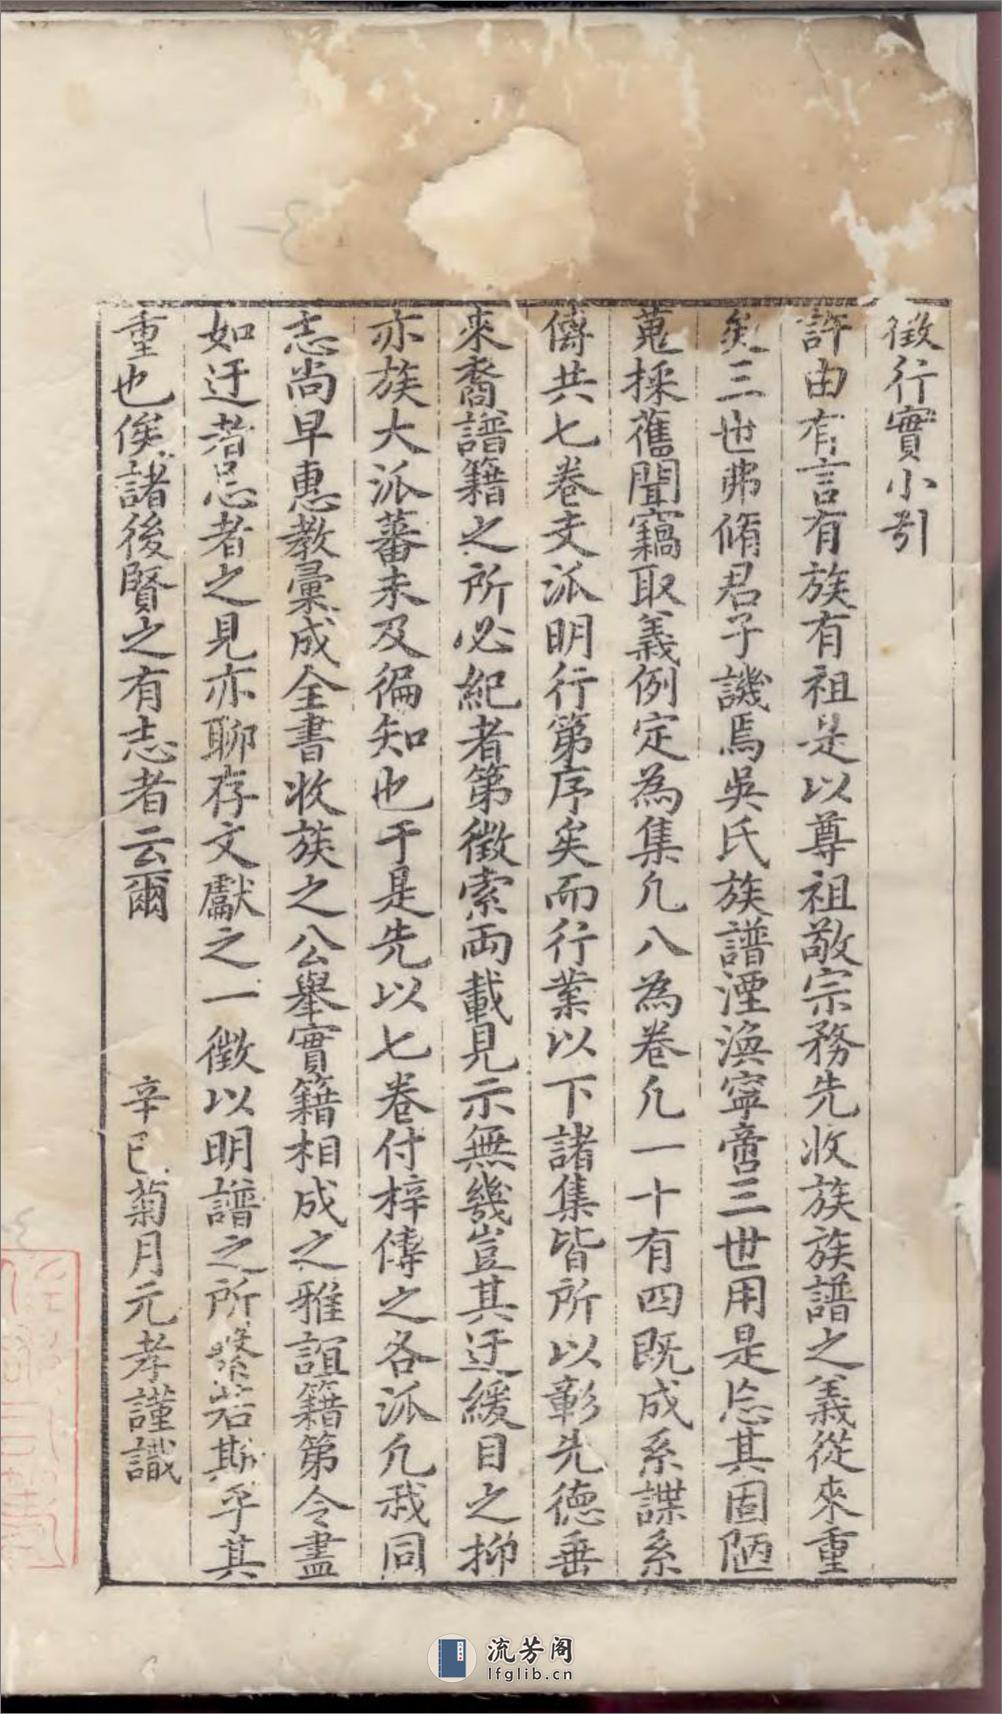 徵行實小引
許由有言有族有祖是以尊祖敬宗務先收族族譜之義從來重
矣三世弗脩君子譏焉吳氏族譜湮渙寧啻三世用是忘其固陋
蒐採舊聞竊取義例定為集凡八為卷凡一十有四既成系諜系
傳共七卷支派明行第序矣而行業以下諸集皆所以彰先德垂
來裔譜籍之所必紀者第徵索両載見示無幾豈其迂緩目之抑
亦族大派蕃未及徧知也于是先以七卷付梓傳之各派凡我同
志尚早惠教彙成全書收族之公舉實籍相成之雅誼籍第令盡
如迂者忘者之見亦聊存文獻之一徵以明譜之所繫若斯乎其
重也俟諸後賢之有志者云爾
辛巳菊月元孝謹識
3-1
流芳阁
lfglib.cn